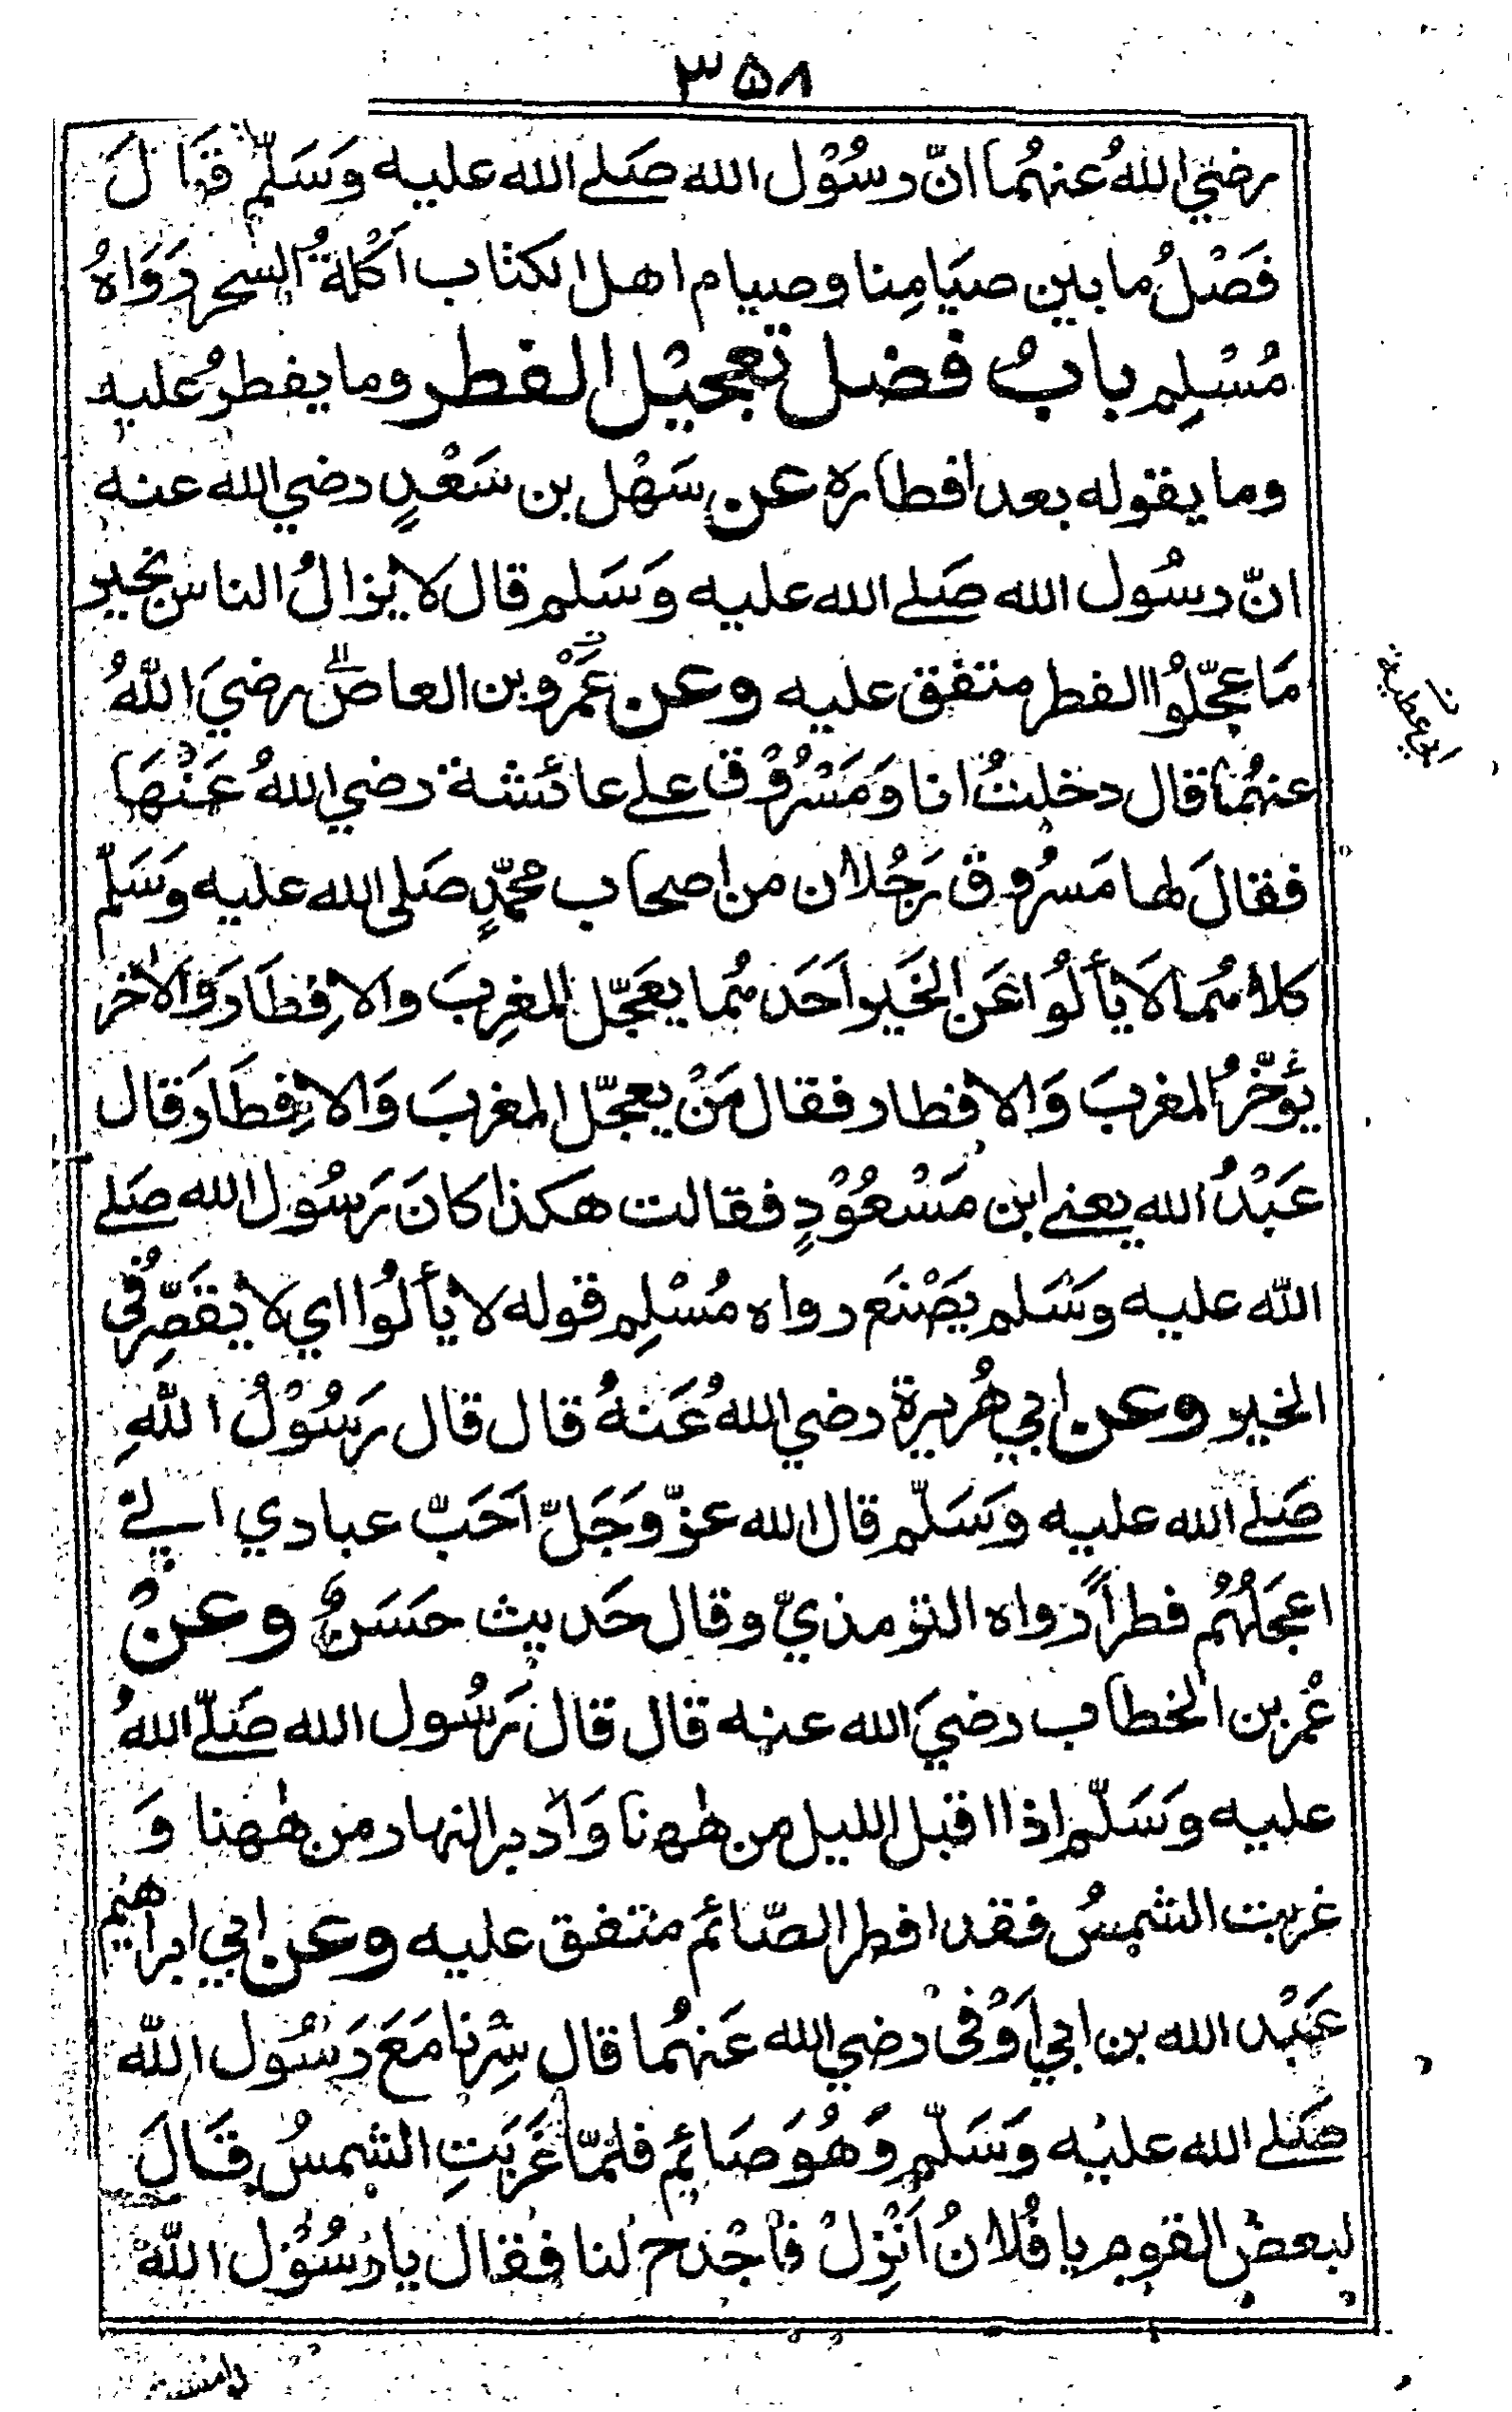 ٣٥٨
رضي اللهُ عنهُما انّ رسُوْل الله صَلے الله عليه وَسَلّم قَالَ
فَصْلُ ما بين صيَامِنا وصيام اهل الكتاب اَكْلةُ السحر رَوَاهُ
مُسْلِم بابُ فضل تعجيْل الفطر وما يفطرُ عليه
وما يقوله بعد افطاره عن سَهْل بن سَعْدٍ رضي الله عنه
انّ رسُول الله صَلے الله عليه وَسَلم قال لا يزالُ الناس بخير
مَا عجّلُوا الفطر متفق عليه وعن عَمْرو بن العاص رضيَ اللّٰهُ
عنهُما قال دخلتُ انا وَمَسْرُوْق علے عائشة رضي اللهُ عَنْهَا
فقالَ لها مَسرُوق رَجُلان من اصحاب محمّدٍ صَلى الله عليه وَسَلّم
كلاهُما لَا يألُوا عَن الخَير اَحَدهُما يعَجّل المغرِبَ والافِطَارَ وَالاٰخر
يؤَخّرُ المغربَ وَالافطار فقال مَنْ يعجّل المغربَ وَالافِطَارَ قال
عَبْدُ الله يعنے ابن مَسْعُوْدٍ فقالت هكذا كانَ رَسُوْل الله صَلے
الله عليه وسَلم يَصْنَع رواه مُسْلِم قوله لا يألُوا اي لا يُقَصّرُ في
الخير وعن ابي هُريرة رضي اللهُ عَنهُ قال قال رَسُوْلُ اللّٰهِ
صَلے الله عليه وَسَلّم قال الله عزّ وَجَلّ اَحَبّ عبادي الےّ
اعجَلُهُم فطراً رواه الترمذيّ وقال حَديث حسَنٌ وعنْ
عُمر بن الخطاب رضيَ الله عنه قال قال رَسُول الله صَلّے اللهُ
عليه وَسَلّم اذا اقبل الليل من هٰهنا وَادبر النهار من هٰهنا وَ
غربت الشمسُ فقد افطر الصّائم متفق عليه وعن ابي ابراهيم
عَبْد الله بن ابي اَوْفىٰ رضي الله عَنهُما قال سِرْنا مَعَ رَسُول اللّٰه
صَلے الله عليه وَسَلّم وَهُوَ صَائِم فلمّا غَرَبَتِ الشمسُ قَالَ
لبعض القوم يا فُلانُ اَنْزِلْ فاجْدح لنا فقال يا رَسُوْل اللّٰه